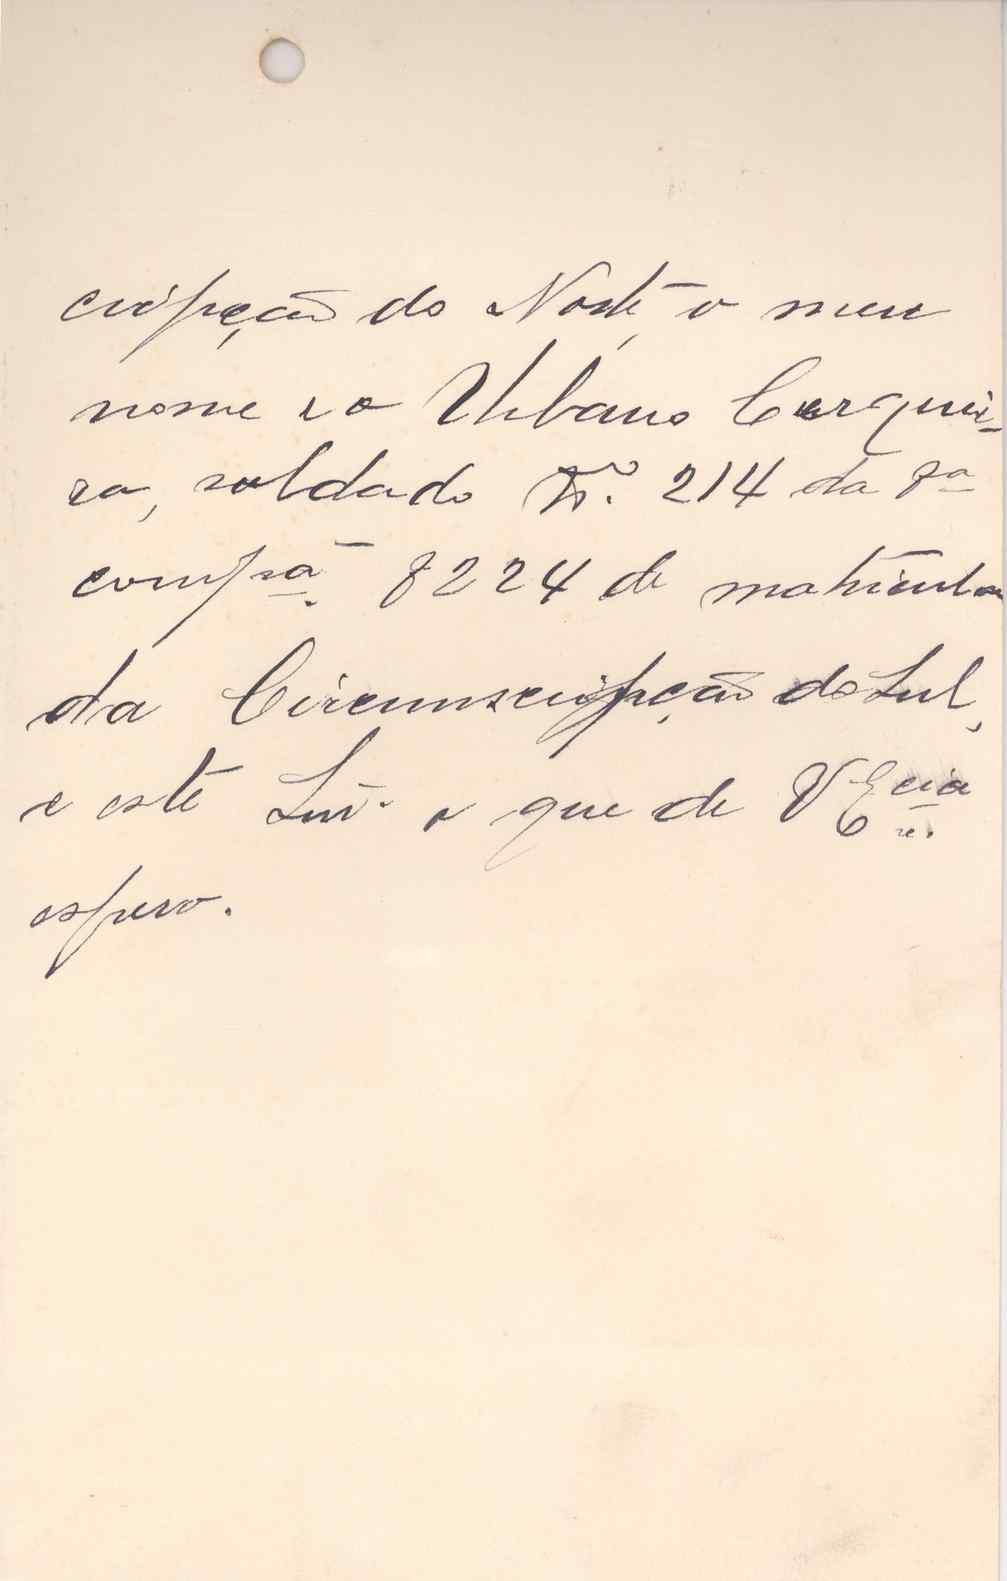 cripção do Norte, o meu
nome e o Urbano Cerquei-
ra, soldado Nº. 214 da 8ª
compª. 8224 de matricula
da Circunscripção do Sul,
e este o que de V Ecia
espero.